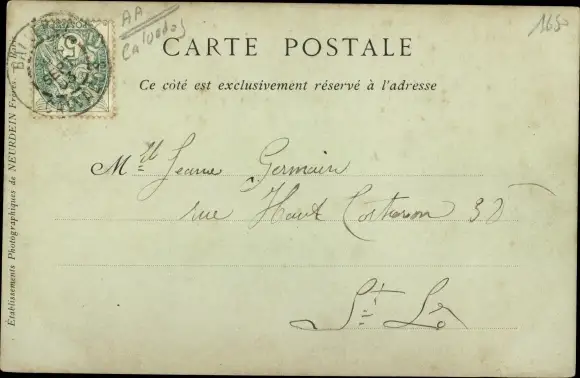 AA
Calvados
1650
CARTE POSTALE
Ce côté est exclusivement réservé à l'adresse
Mlle Jeanne Germain
rue Haut
St Lô
Établissements Photographiques de NEURDEIN Frères.